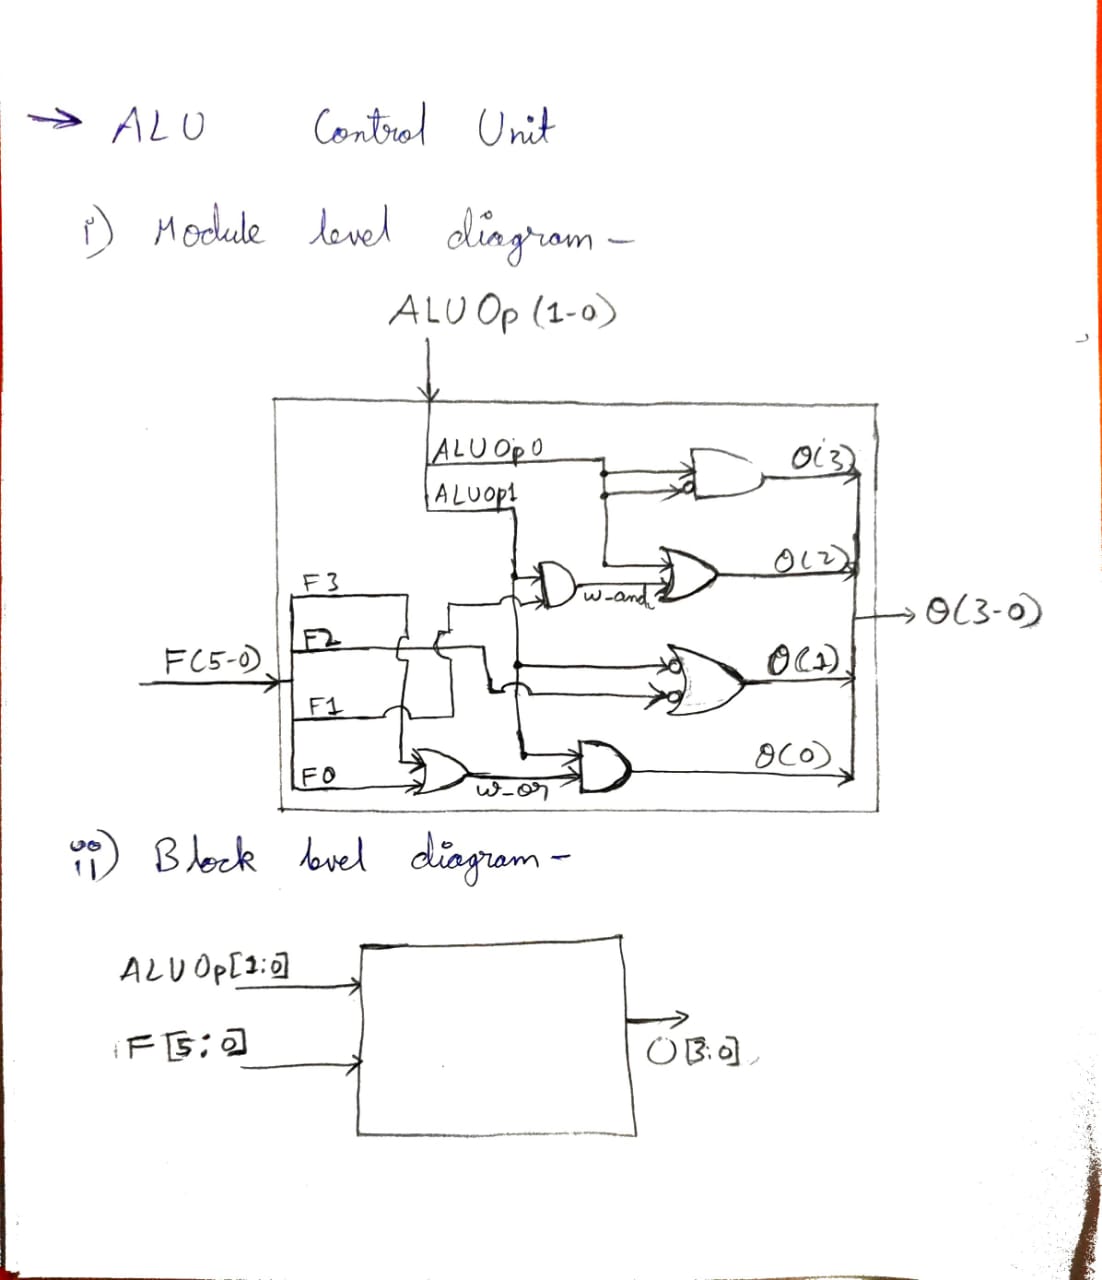 → ALU Control Unit
i) Module level diagram –
ALU Op (1-0)
ALU Op 0
O(3)
ALUOp1
O(2)
F3
w-and
O(3-0)
F2
F(5-0)
O(1)
F1
O(0)
F0
w-or
ii) Block level diagram –
ALU Op[1:0]
F[5:0]
O[3:0]